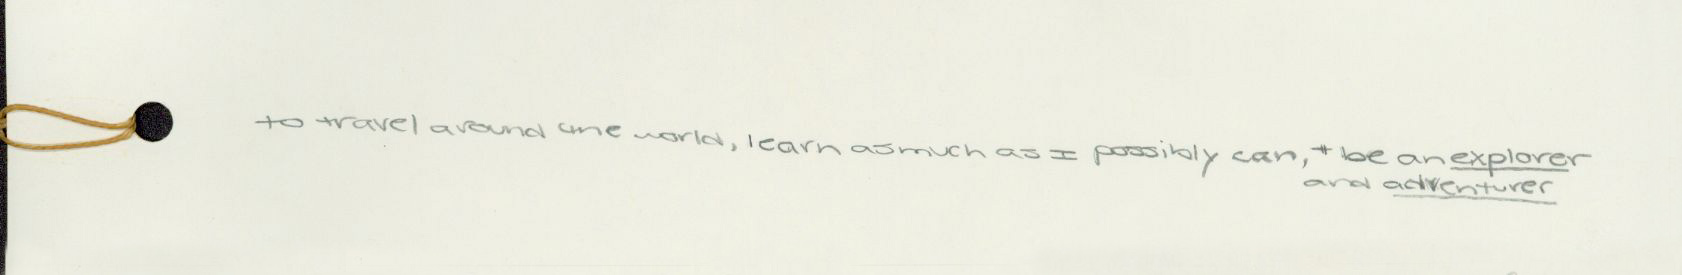 to travel around the world, learn as much as I possibly can, + be an explorer
and adventurer